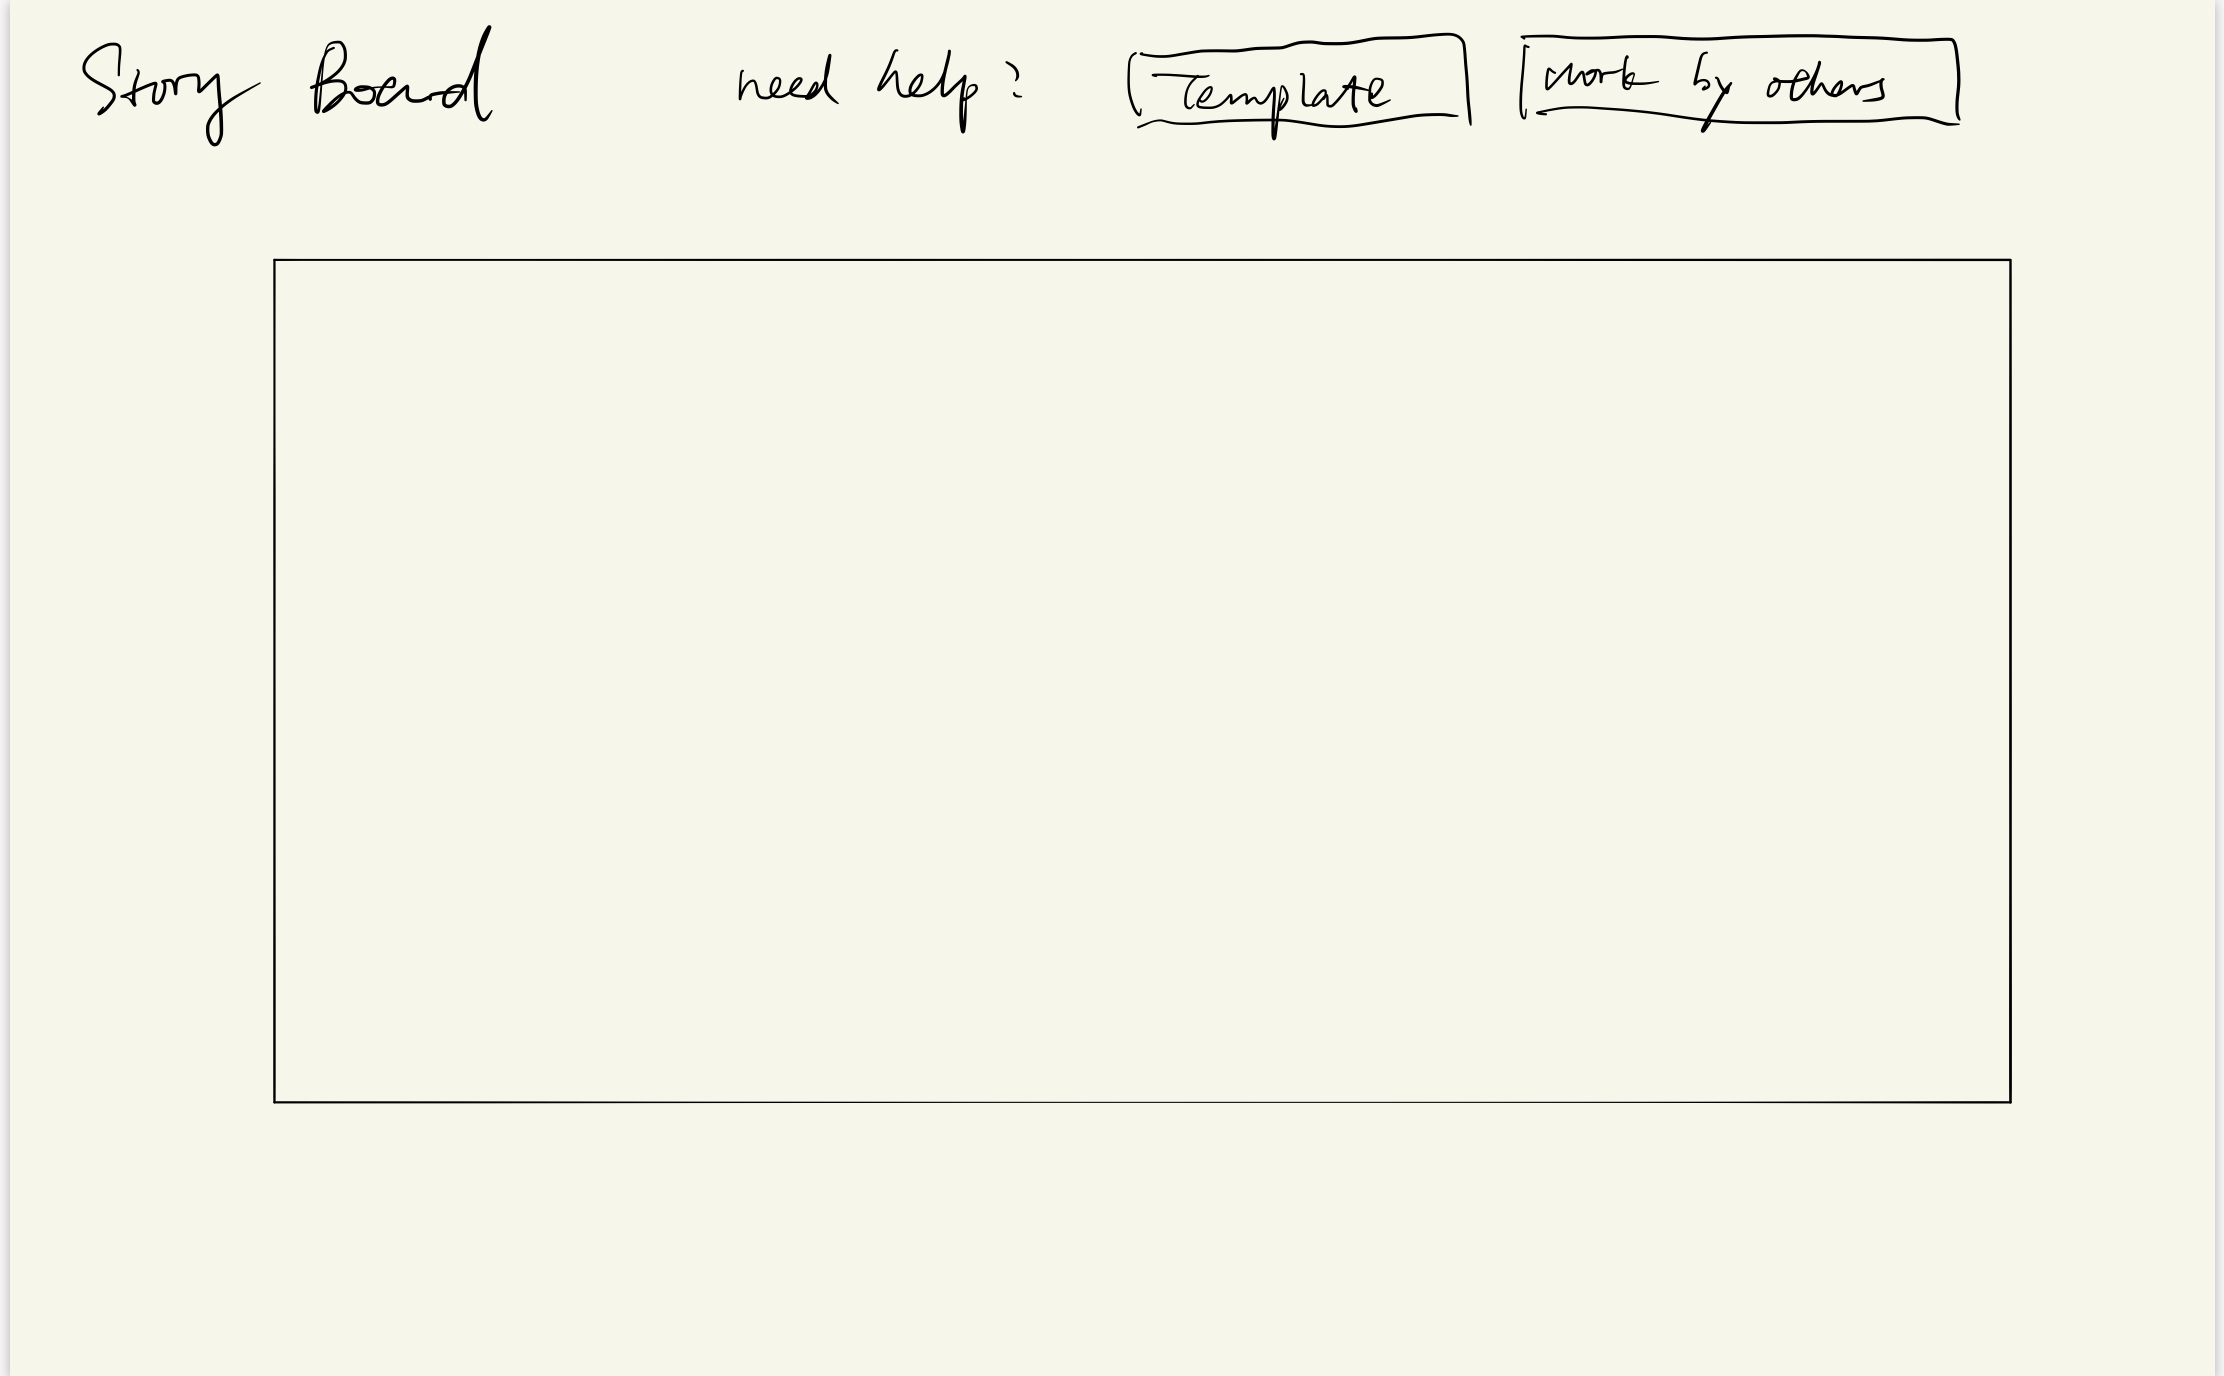 Story Board need help? Template work by others